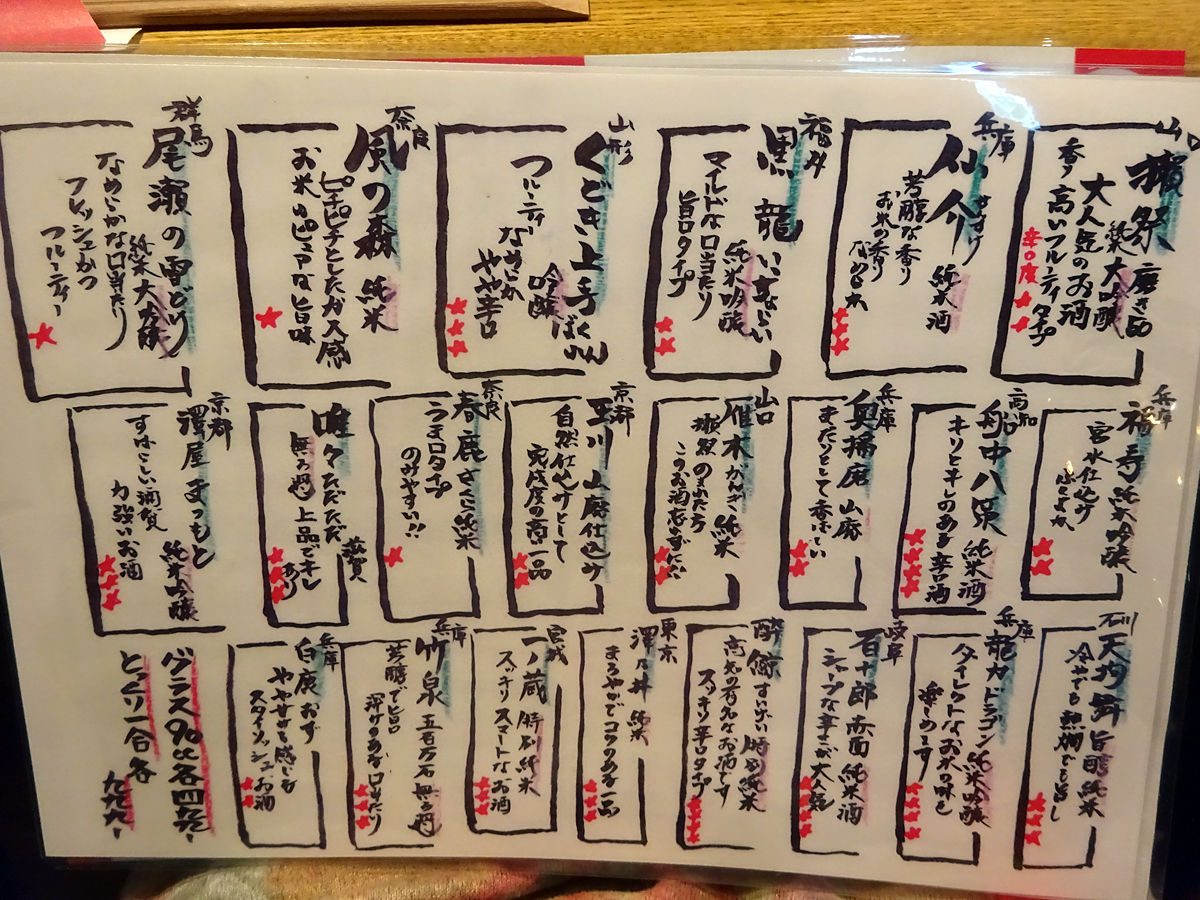 山口
獺祭 磨き50
純米大吟醸
大人気のお酒
香り高いフルーティタイプ
辛口度 ★★
兵庫
仙介 せんすけ
純米酒
芳醇な香り
お米の香り
★★★
福井
黒龍 いっちょらい
純米吟醸
マイルドな口当たり
旨口タイプ
★★
山形
くどき上手 ばくれん
吟醸
なめらか
フルーティ
やや辛口
★★★
奈良
風の森 純米
ピチピチとしたガス感
お米のピュアな旨味
★
群馬
尾瀬の雪どけ
純米大吟醸
なめらかな口当たり
フレッシュかつ
フルーティー
★
兵庫
福寿 純米吟醸
宮水仕込み
ふくよか
★★
高知
船中八策 純米酒
キリとキレのある辛口酒
★★★★
兵庫
奥播磨 山廃
まったりとして香ばしい
★★
山口
雁木 がんぎ 純米
獺祭のみた方
このお酒もぜひに
★★
京都
玉川 山廃仕込み
自然仕込みとして
完成度の高い一品
★★
奈良
春鹿 さくら 純米
うま口タイプ
のみやすい!!
★
滋賀
唯々 ただただ
無ろ過 上品でキレあり
★★★
京都
澤屋まつもと
純米吟醸
すばらしい酒質
力強いお酒
★★★
石川
天狗舞 旨醇 純米
冷やでも熱燗でも旨し
★★★
兵庫
龍力 ドラゴン 純米吟醸
ダイレクトなお米の味を
楽しめます
★★★★
岐阜
百十郎 赤面 純米酒
シャープな辛さが大人気
★★★★
酔鯨 すいげい 特別純米
高知の有名なお酒です
スッキリ辛口タイプ
★★★★
東京
澤乃井 純米
まろやかでコクのある一品
★★★
宮城
一ノ蔵 特別純米
スッキリスマートなお酒
★★★
兵庫
竹泉 五百万石 無ろ過
芳醇で旨口
深けのある口当たり
★★★
兵庫
白鹿
やや甘さも感じる
スタイリッシュなお酒
★★
グラス90cc各四九九-
とっくり一合各
九九九-